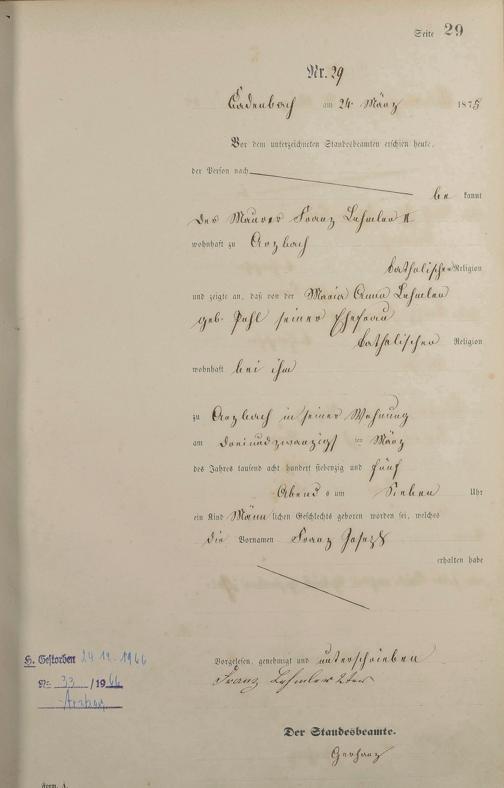 Seite 29
Nr. 29
Cadenbach am 24. März 1875
Vor dem unterzeichneten Standesbeamten erschien heute,
der Person nach
bekannt
der Maurer Franz Lehmler II
wohnhaft zu Arzbach
katholischer Religion
und zeigte an, daß von der Maria Anna Lehmler
geb. Pehl seiner Ehefrau
katholischer Religion
wohnhaft bei ihm
zu Arzbach in seiner Wohnung
am dreiundzwanzigsten März
des Jahres tausend acht hundert siebenzig und fünf
Abends um Sieben Uhr
ein Kind Männlichen Geschlechts geboren worden sei, welches
die Vornamen Franz Josef
erhalten habe
Vorgelesen, genehmigt und unterschrieben
Franz Lehmler 2ter
H. Gestorben 24.12.1966
Nr. 33 /1966
Arzbach
Der Standesbeamte.
Gerharz
Form. A.